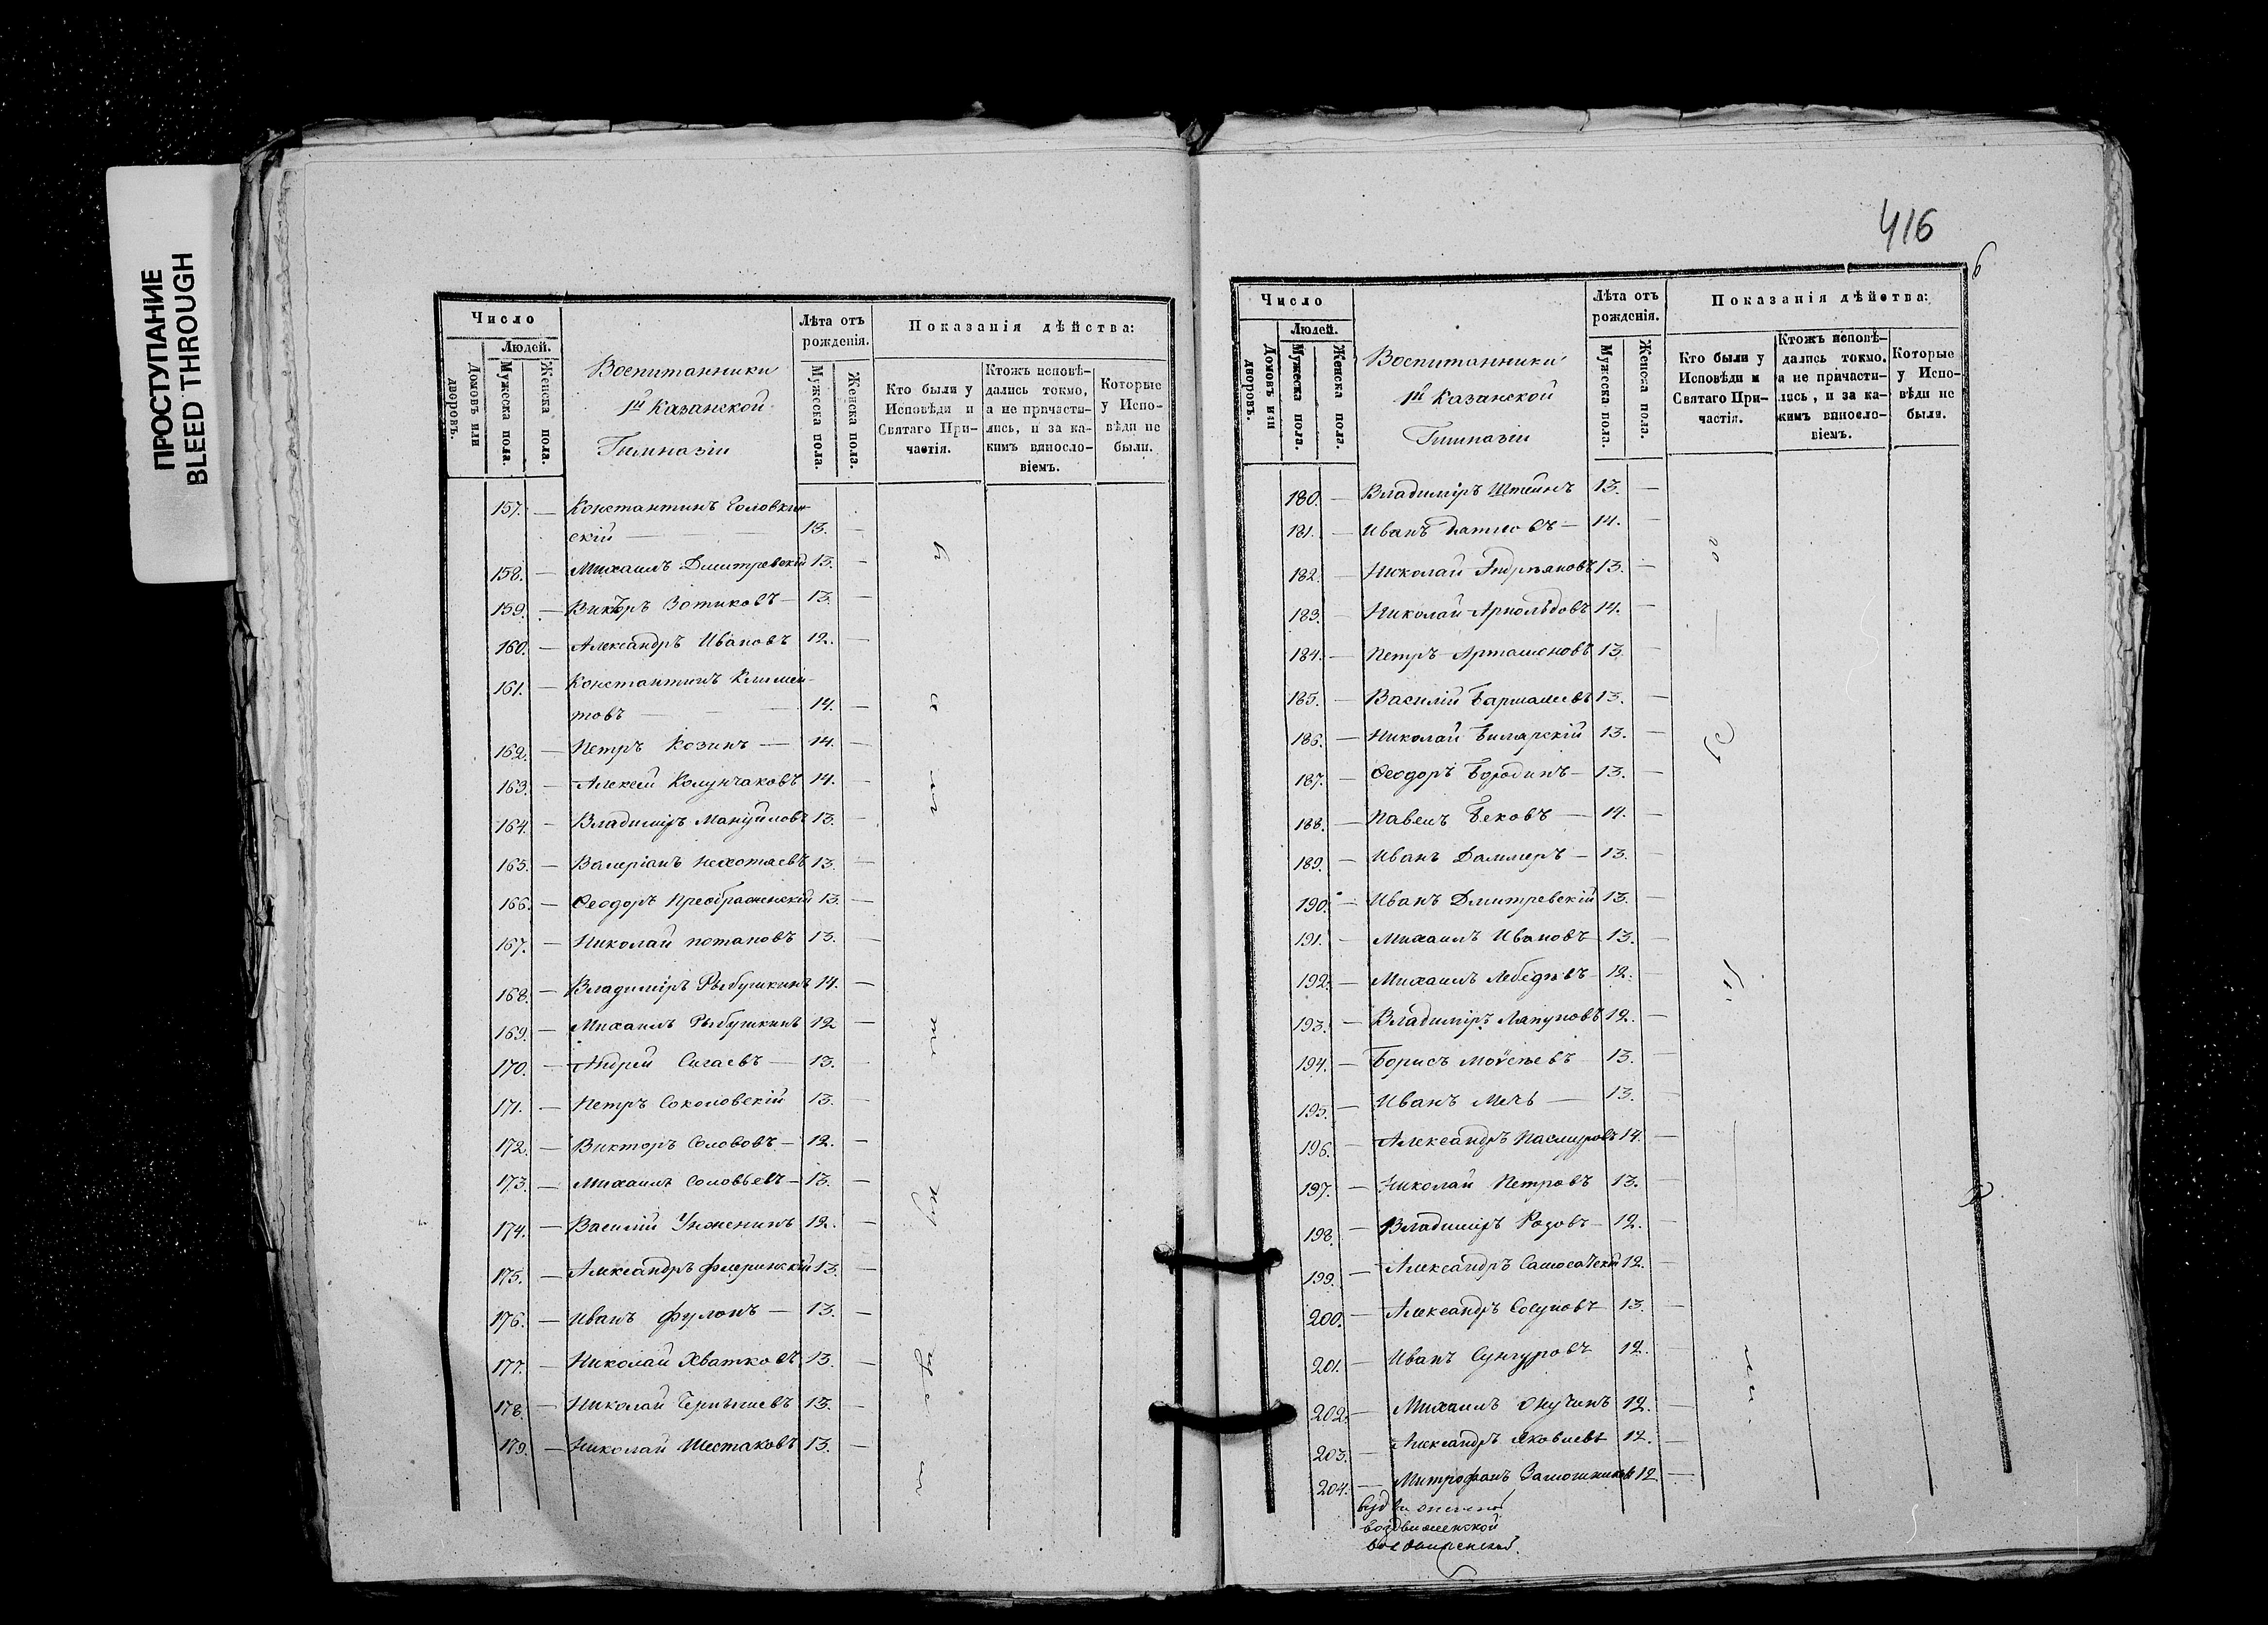 ПРОСТУПАНИЕ
BLEED THROUGH
Число
Людей.
Домовъ или дворовъ.
Мужеска пола.
Женска пола.
Воспитанники
1й Казанской
Гимназіи
Лѣта отъ рожденія.
Мужеска пола.
Женска пола.
Показанія дѣйства:
Кто были у Исповѣди и Святаго Причастія.
Ктожъ исповѣдались токмо, а не причастились, и за какимъ винословіемъ.
Которые у Исповѣди не были.
157. — Константинъ Головкин-
скій — 13. —
158. — Михаилъ Дмитревскій 13. —
159. — Викторъ Зотиковъ — 13. —
160. — Александръ Ивановъ 12. —
161. — Константинъ Климен-
товъ — 14. —
162. — Петръ Козинъ — 14. —
163. — Алексѣй Колунчаковъ 14. —
164. — Владиміръ Мануйловъ 13. —
165. — Валеріанъ Нехотяевъ 13. —
166. — Ѳеодоръ Преображенскій 13. —
167. — Николай Потаповъ 13. —
168. — Владиміръ Рыбушкинъ 14. —
169. — Михаилъ Рыбушкинъ 12 —
170. — Андрей Сигаевъ — 13. —
171. — Петръ Соколовскій 13. —
172. — Викторъ Солововъ — 12. —
173. — Михаилъ Соловьевъ — 13. —
174. — Василій Унженинъ 12. —
175. — Александръ Флеринскій 13. —
176. — Иванъ Фулонъ — 13. —
177. — Николай Хватковъ 13. —
178. — Николай Чернышевъ 13. —
179. — Николай Шестаковъ 13. —
416
Число
Людей.
Домовъ или дворовъ.
Мужеска пола.
Женска пола.
Воспитанники
1й Казанской
Гимназіи
Лѣта отъ рожденія.
Мужеска пола.
Женска пола.
Показанія дѣйства:
Кто были у Исповѣди и Святаго Причастія.
Ктожъ исповѣдались токмо, а не причастились, и за какимъ винословіемъ.
Которые у Исповѣди не были.
180. — Владиміръ Штейнъ 13. —
181. — Иванъ — 14. —
182. — Николай Андреяновъ 13. —
183. — Николай Арнольдовъ 14. —
184. — Петръ Арташоновъ 13. —
185. — Василій 13. —
186. — Николай Билярскій 13. —
187. — Ѳеодоръ Бородинъ — 13. —
188. — Павелъ Бековъ — 14. —
189. — Иванъ Даллеръ — 13. —
190. — Иванъ Дмитревскій 13. —
191. — Михаилъ Ивановъ — 13. —
192. — Михаилъ Лебедевъ — 12. —
193. — Владиміръ Ляпуновъ 12. —
194. — Борисъ Моѵсѣевъ — 13. —
195. — Иванъ Мечь — 13. —
196. — Александръ Пасмуровъ 14. —
197. — Николай Петровъ 13. —
198. — Владиміръ Розовъ — 12. —
199. — Александръ Самосатскій 12. —
200. — Александръ Сосуновъ 13. —
201. — Иванъ Сунгуровъ 12. —
202. — Михаилъ Онучинъ 12. —
203. — Александръ Яковлевъ 12. —
204. — Митрофанъ 12 —
воздвиженской